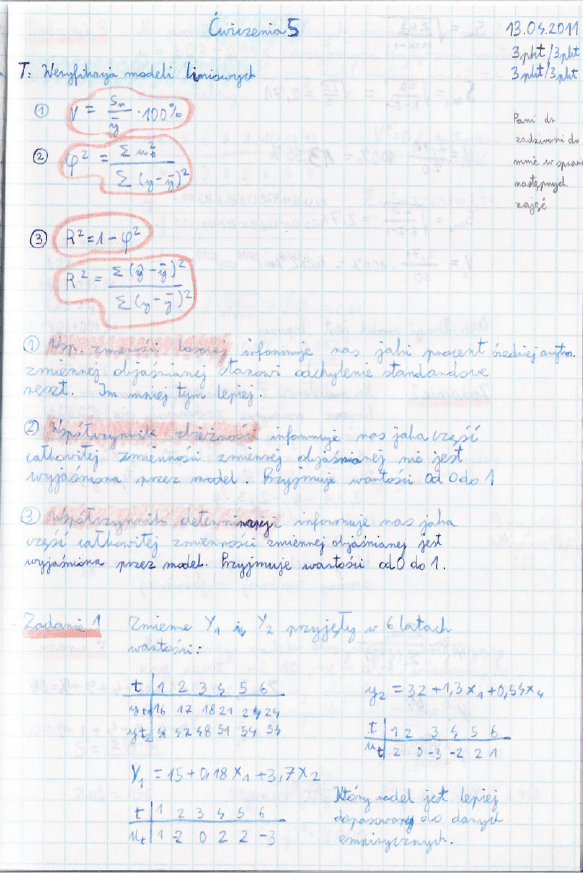 Ćwiczenia 5
13.04.2011
3pkt/3pkt
3pkt/3pkt
T: Weryfikacja modeli liniowych
① V = Su/ȳ · 100%
② φ² = Σ ut² / Σ (y - ȳ)²
Pani dr
zadzwoni do
mnie w sprawie
następnych
zajęć
③ R² = 1 - φ²
R² = Σ (ŷ - ȳ)² / Σ (y - ȳ)²
① Wsp. zmienności losowej informuje nas jaki procent średniej arytm.
zmiennej objaśnianej stanowi odchylenie standardowe
reszt. Im mniej tym lepiej.
② Współczynnik zbieżności informuje nas jaka część
całkowitej zmienności zmiennej objaśnianej nie jest
wyjaśniona przez model. Przyjmuje wartości od 0 do 1
③ Współczynnik determinacji informuje nas jaka
część całkowitej zmienności zmiennej objaśnianej jest
wyjaśniona przez model. Przyjmuje wartości od 0 do 1.
Zadanie 1 Zmienne Y₁ i Y₂ przyjęły w 6 latach
wartości:
t | 1 2 3 4 5 6
yt1 | 16 17 18 21 24 24
yt2 | 47 48 51 54 54
y₂ = 32 + 1,3x₁ + 0,54x₄
t | 1 2 3 4 5 6
ut | 2 0 -3 -2 2 1
Y₁ = 15 + 0,18x₁ + 3,7x₂
t | 1 2 3 4 5 6
ut | 1 -2 0 2 2 -3
Który model jest lepiej
dopasowany do danych
empirycznych.